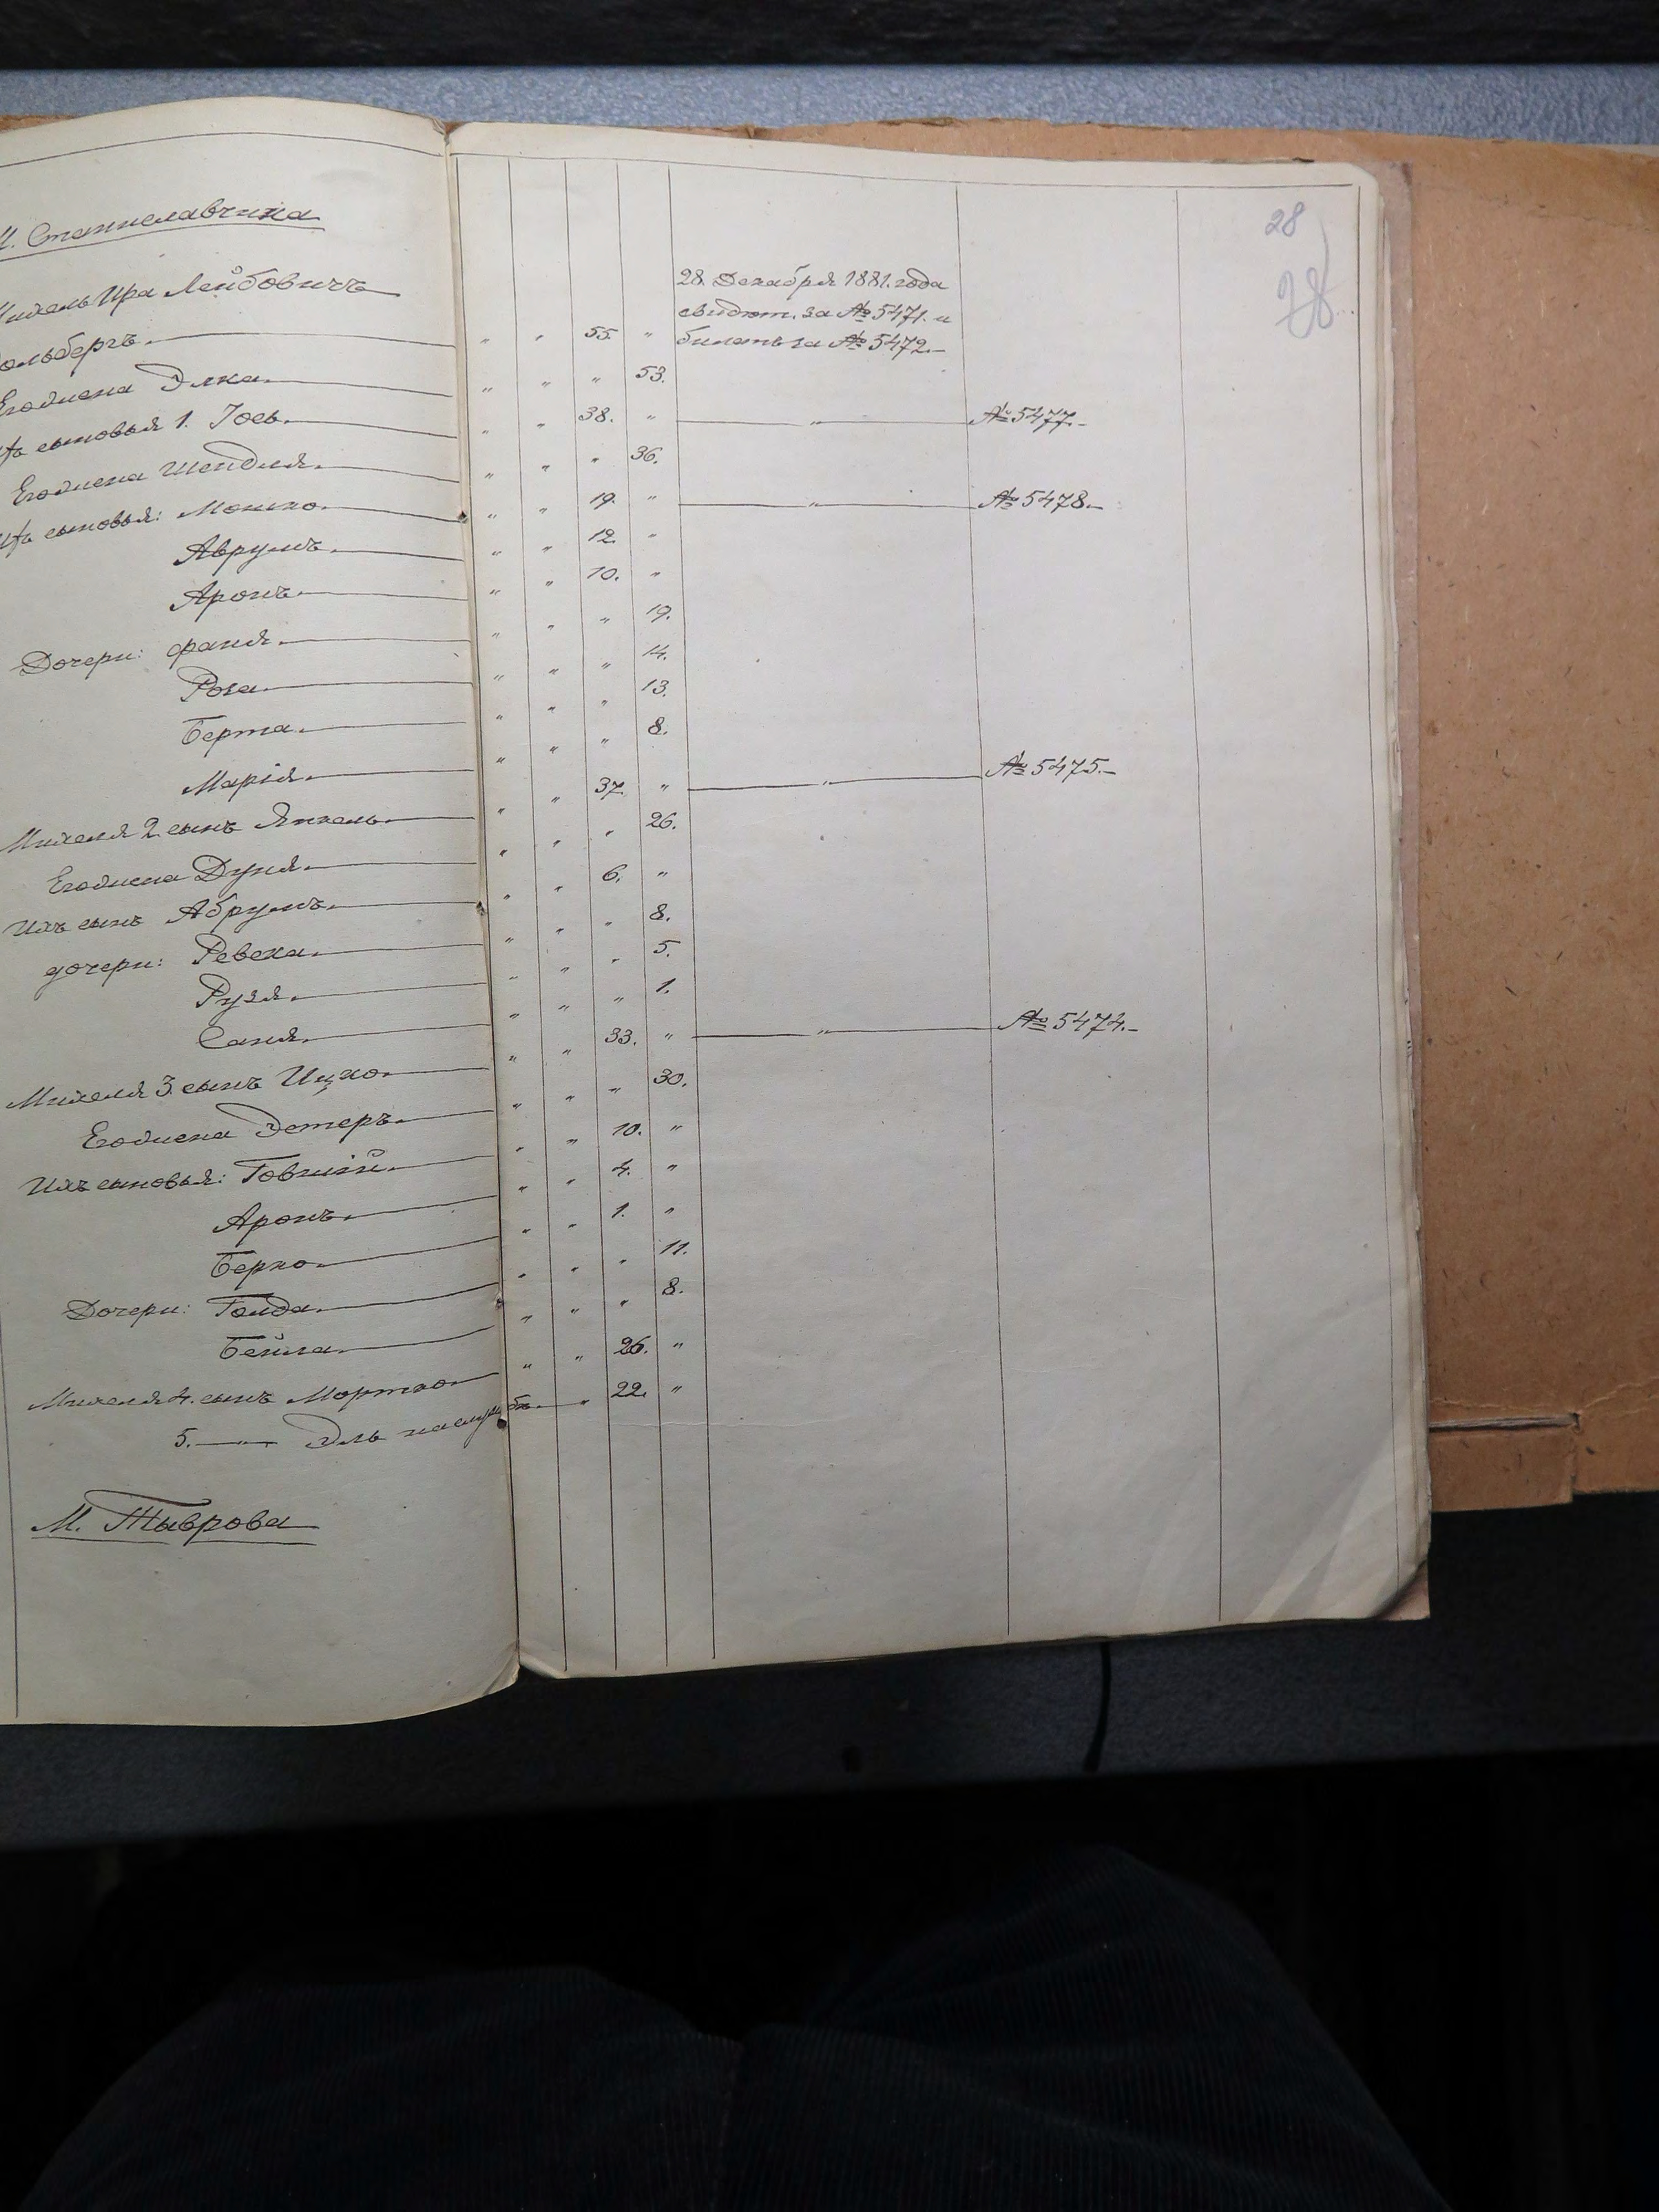 М. Станиславчика
28
28
Михель Ира Лейбовичъ
28 Декабря 1881 года
свидѣт. за № 5471. и
ольбергъ. " " 55. " билетъ за № 5472.
Его жена Элка. " " " 53.
Ихъ сыновья 1. Іось. " " 38. " " № 5477.
Его жена Шендля. " " " 36.
Ихъ сыновья: Мошко. " " 19. " " № 5478.
Аврумъ. " " 12. "
Аронъ. " " 10. "
Дочери: Фаня. " " " 19.
Роза. " " " 14.
Берта. " " " 13.
Марія. " " " 8.
Михеля 2. сынъ Янкель. " " 37. " " № 5475.
Его жена Дуня. " " " 26.
Ихъ сынъ Абрумъ. " " 6. "
дочери: Ревека. " " " 8.
Рузя. " " " 5.
Саня. " " " 1.
Михеля 3. сынъ Ицко. " " 33. " " № 5474.
Его жена Эстеръ. " " " 30.
Ихъ сыновья: Говшій. " " 10. "
Аронъ. " " 4. "
Берко. " " 1. "
Дочери: Голда. " " " 11.
Бейла. " " " 8.
Михеля 4. сынъ Мортко " " 26. "
5. " Эль на службѣ. " 22. "
М. Тыврова